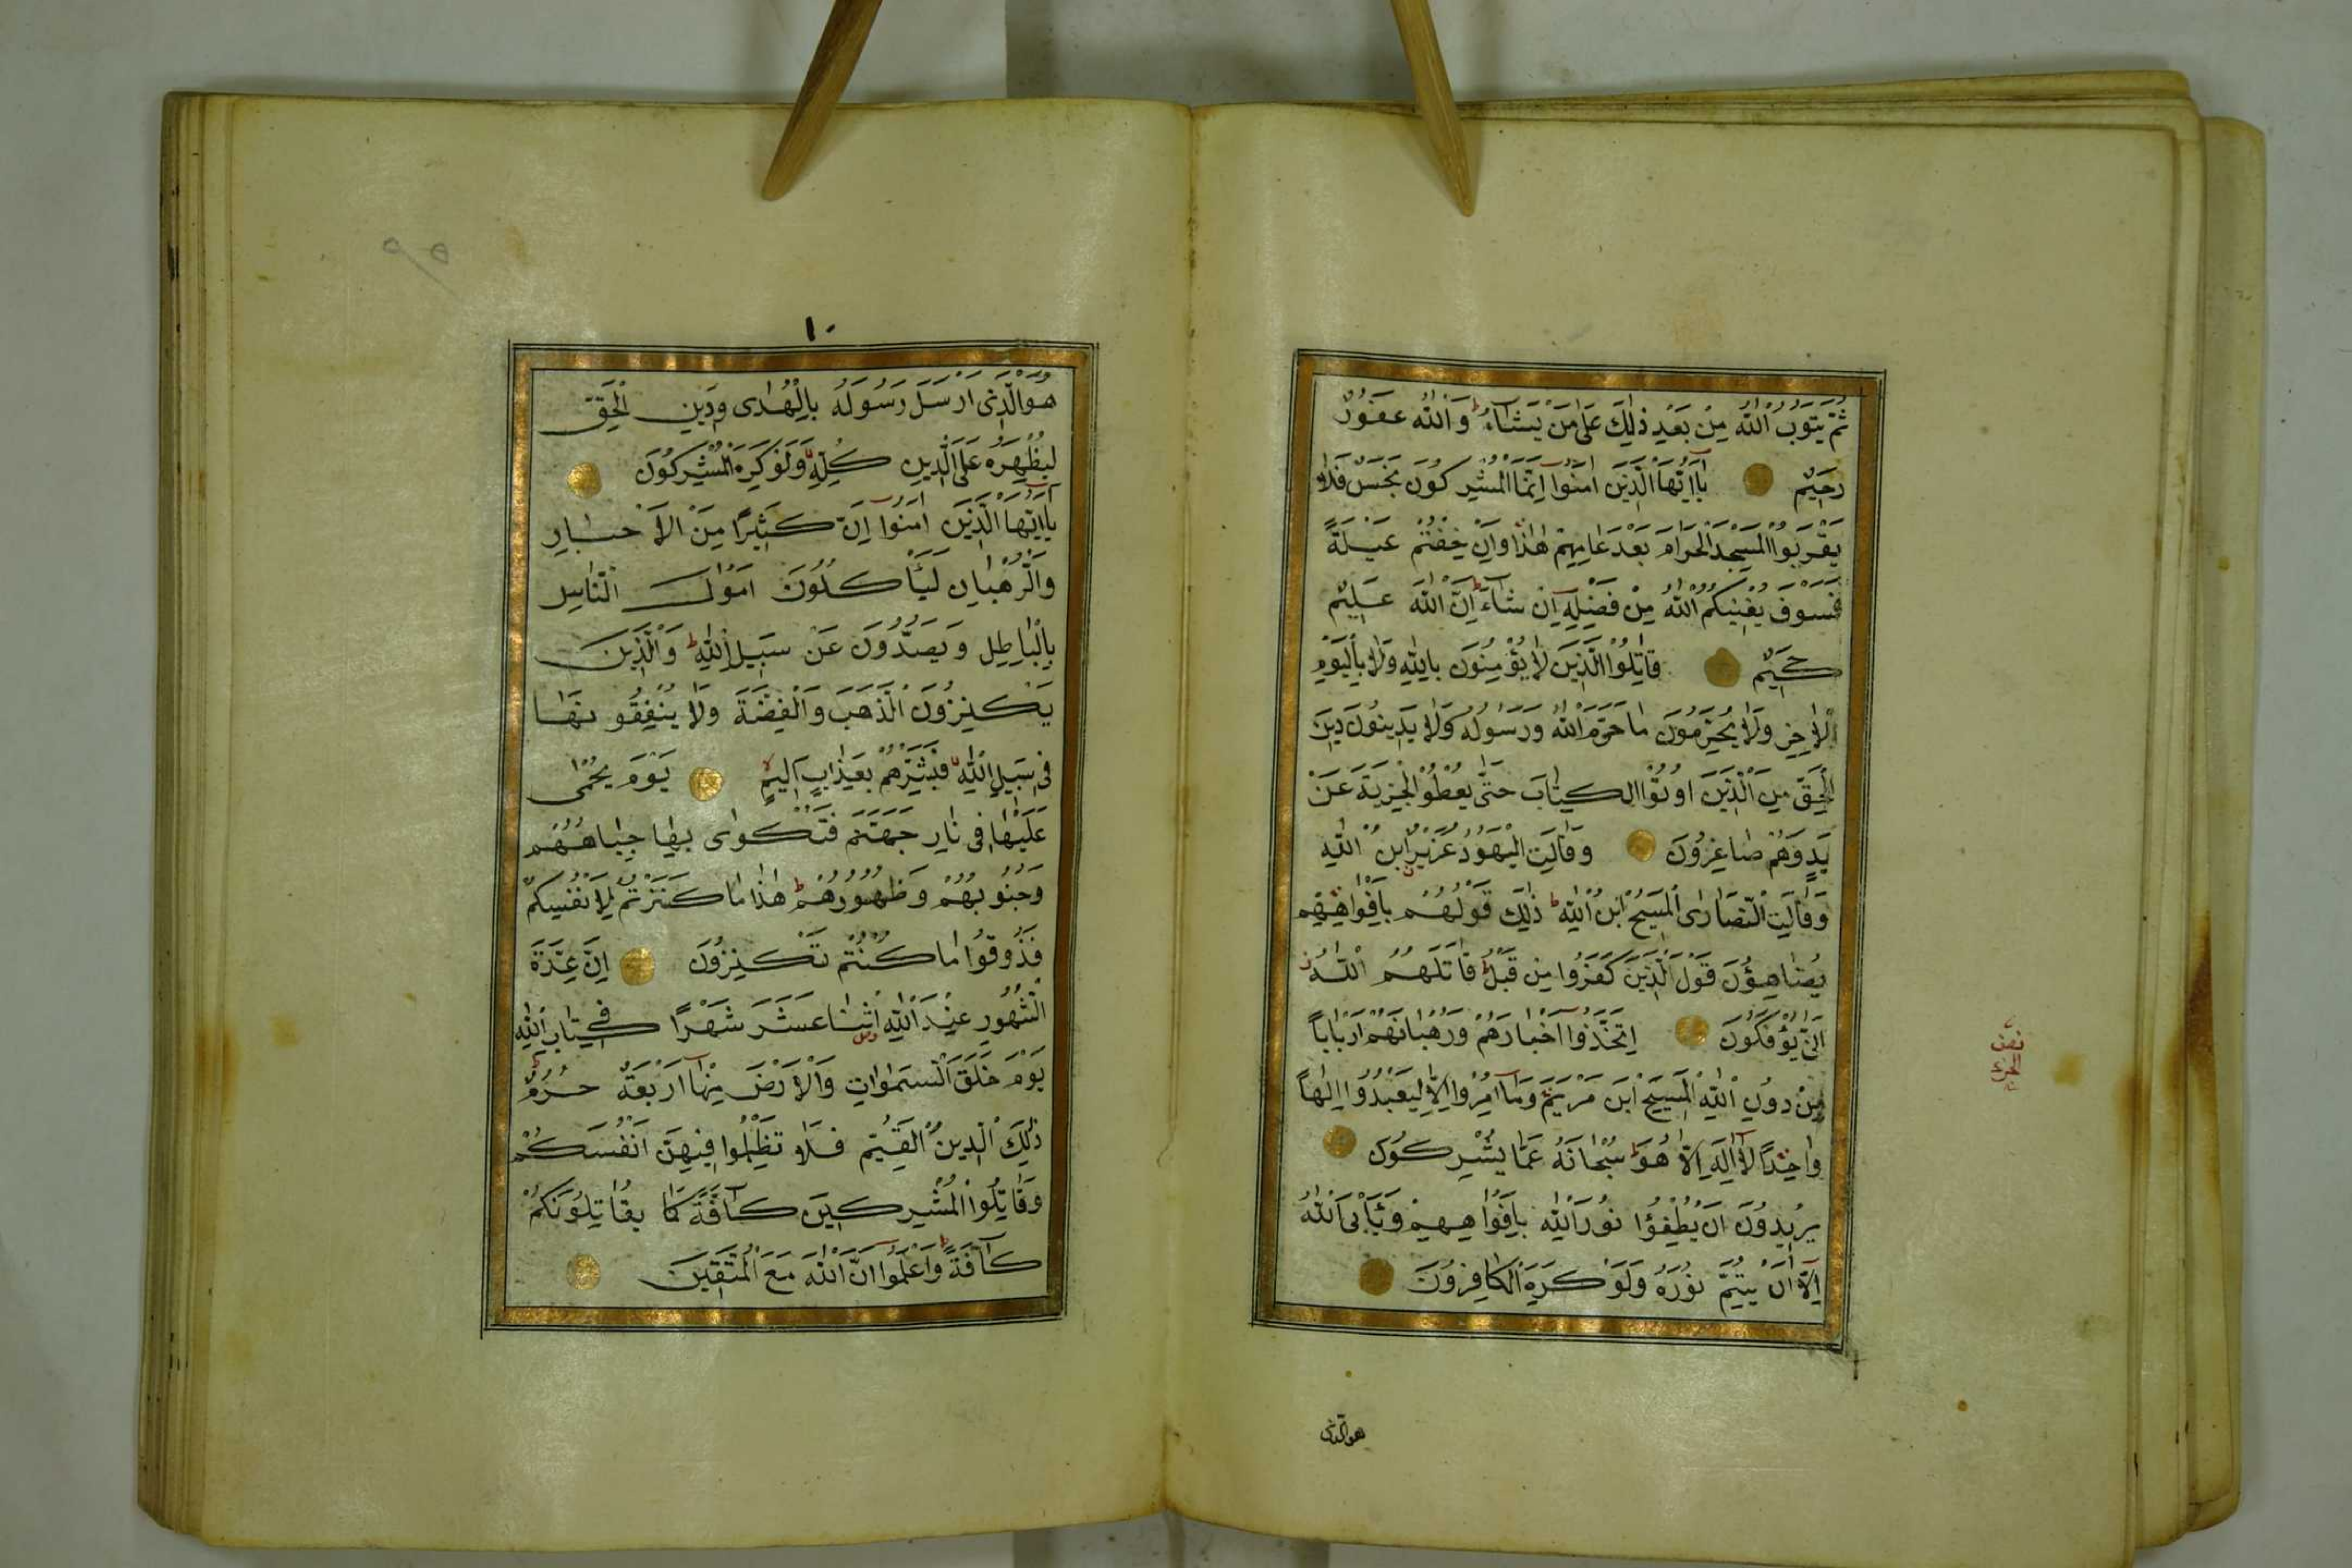 ثُمَّ يَتُوبُ اللّٰهُ مِنْ بَعْدِ ذٰلِكَ عَلٰى مَنْ يَشَآءُ ط وَاللّٰهُ غَفُورٌ
رَحِيمٌ يَآاَيُّهَا الَّذِينَ اٰمَنُوٓا اِنَّمَا الْمُشْرِكُونَ نَجَسٌ فَلَا
يَقْرَبُوا الْمَسْجِدَ الْحَرَامَ بَعْدَ عَامِهِمْ هٰذَا وَاِنْ خِفْتُمْ عَيْلَةً
فَسَوْفَ يُغْنِيكُمُ اللّٰهُ مِنْ فَضْلِهِٓ اِنْ شَآءَ ط اِنَّ اللّٰهَ عَلِيمٌ
حَكِيمٌ قَاتِلُوا الَّذِينَ لَا يُؤْمِنُونَ بِاللّٰهِ وَلَا بِالْيَوْمِ
الْاٰخِرِ وَلَا يُحَرِّمُونَ مَا حَرَّمَ اللّٰهُ وَرَسُولُهُ وَلَا يَدِينُونَ دِينَ
الْحَقِّ مِنَ الَّذِينَ اُوتُوا الْكِتَابَ حَتّٰى يُعْطُوا الْجِزْيَةَ عَنْ
يَدٍ وَهُمْ صَاغِرُونَ وَقَالَتِ الْيَهُودُ عُزَيْرٌ ابْنُ اللّٰهِ
وَقَالَتِ النَّصَارٰى الْمَسِيحُ ابْنُ اللّٰهِ ط ذٰلِكَ قَوْلُهُمْ بِاَفْوَاهِهِمْ
يُضَاهِؤُنَ قَوْلَ الَّذِينَ كَفَرُوا مِنْ قَبْلُ ط قَاتَلَهُمُ اللّٰهُ
اَنّٰى يُؤْفَكُونَ اِتَّخَذُوٓا اَحْبَارَهُمْ وَرُهْبَانَهُمْ اَرْبَابًا
مِنْ دُونِ اللّٰهِ وَالْمَسِيحَ ابْنَ مَرْيَمَ وَمَآ اُمِرُوٓا اِلَّا لِيَعْبُدُوٓا اِلٰهًا
وَاحِدًا لَآ اِلٰهَ اِلَّا هُوَ ط سُبْحَانَهُ عَمَّا يُشْرِكُونَ
يُرِيدُونَ اَنْ يُطْفِؤُا نُورَ اللّٰهِ بِاَفْوَاهِهِمْ وَيَأْبَى اللّٰهُ
اِلَّآ اَنْ يُتِمَّ نُورَهُ وَلَوْ كَرِهَ الْكَافِرُونَ
هوالذى
١٠
هُوَ الَّذِٓى اَرْسَلَ رَسُولَهُ بِالْهُدٰى وَدِينِ الْحَقِّ
لِيُظْهِرَهُ عَلَى الدِّينِ كُلِّهِ وَلَوْ كَرِهَ الْمُشْرِكُونَ
يَآاَيُّهَا الَّذِينَ اٰمَنُوٓا اِنَّ كَثِيرًا مِنَ الْاَحْبَارِ
وَالرُّهْبَانِ لَيَأْكُلُونَ اَمْوَالَ النَّاسِ
بِالْبَاطِلِ وَيَصُدُّونَ عَنْ سَبِيلِ اللّٰهِ ط وَالَّذِينَ
يَكْنِزُونَ الذَّهَبَ وَالْفِضَّةَ وَلَا يُنْفِقُونَهَا
فِى سَبِيلِ اللّٰهِ فَبَشِّرْهُمْ بِعَذَابٍ اَلِيمٍ يَوْمَ يُحْمٰى
عَلَيْهَا فِى نَارِ جَهَنَّمَ فَتُكْوٰى بِهَا جِبَاهُهُمْ
وَجُنُوبُهُمْ وَظُهُورُهُمْ ط هٰذَا مَا كَنَزْتُمْ لِاَنْفُسِكُمْ
فَذُوقُوا مَا كُنْتُمْ تَكْنِزُونَ اِنَّ عِدَّةَ
الشُّهُورِ عِنْدَ اللّٰهِ اثْنَا عَشَرَ شَهْرًا فِى كِتَابِ اللّٰهِ
يَوْمَ خَلَقَ السَّمٰوَاتِ وَالْاَرْضَ مِنْهَآ اَرْبَعَةٌ حُرُمٌ ط
ذٰلِكَ الدِّينُ الْقَيِّمُ فَلَا تَظْلِمُوا فِيهِنَّ اَنْفُسَكُمْ
وَقَاتِلُوا الْمُشْرِكِينَ كَآفَّةً كَمَا يُقَاتِلُونَكُمْ
كَآفَّةً ط وَاعْلَمُوٓا اَنَّ اللّٰهَ مَعَ الْمُتَّقِينَ